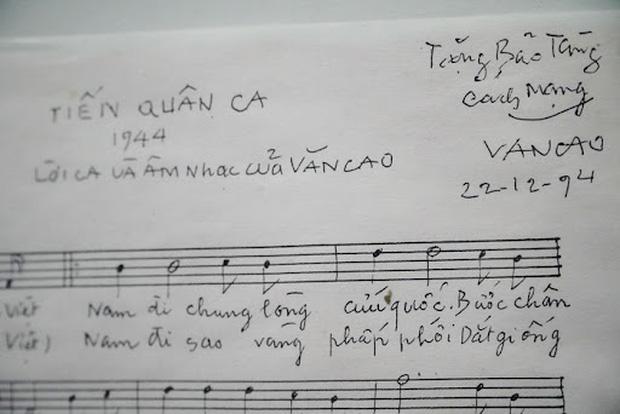 Tặng Bảo Tàng
Cách Mạng
TIẾN QUÂN CA
1944
VĂN CAO
LỜI CA VÀ ÂM NHẠC CỦA VĂN CAO
22-12-94
Việt Nam đi chung lòng cứu quốc. Bước chân
Việt) Nam đi sao vàng phấp phới Dắt giống